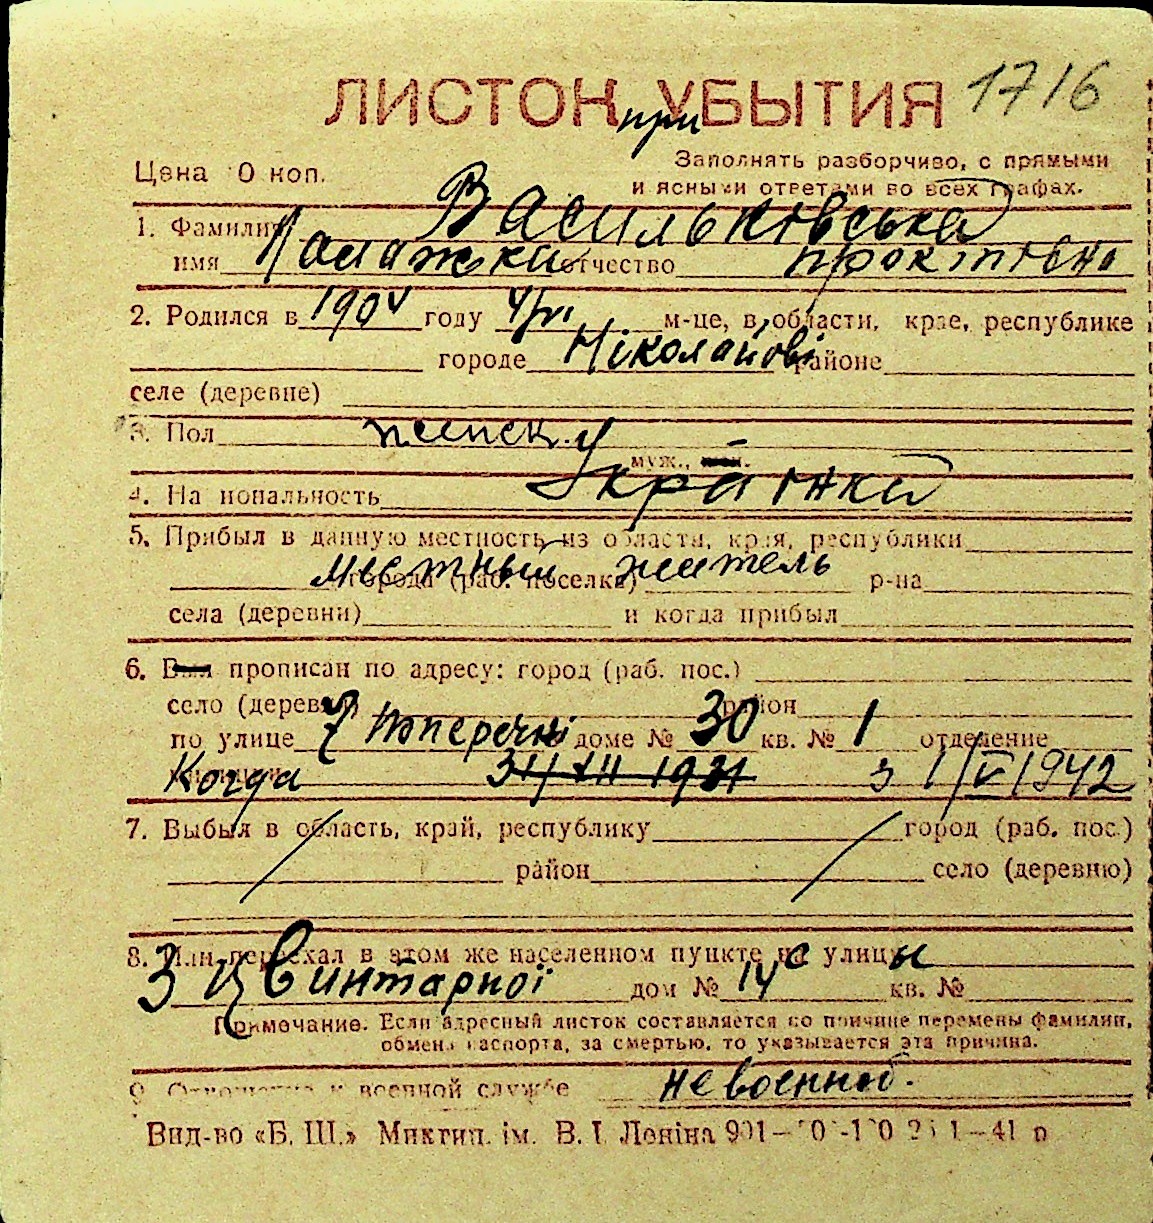 ЛИСТОК УБЫТИЯ 1716
при
Цена 0 коп.
Заполнять разборчиво, с прямыми
и ясными ответами во всех графах.
1. Фамилия Васильковська
имя отчество
2. Родился в 190 году м-це, в области, крае, республике
городе Ніколайові районе
селе (деревне)
3. Пол женск.
муж., жен.
4. Национальность Українка
5. Прибыл в данную местность из области, края, республики
Местный житель
города (раб. поселка) р-на
села (деревни) и когда прибыл
6. Был прописан по адресу: город (раб. пос.)
село (деревня) район
по улице 7 Поперечні доме № 30 кв. № 1 отделение
Когда 31/XII 1931 з 1/V 1942
7. Выбыл в область, край, республику город (раб. пос.)
район село (деревню)
8. Или переехал в этом же населенном пункте на улицу с ы
З Цвинтарної дом № 14 кв. №
Примечание. Если адресный листок составляется по причине перемены фамилии,
обмена паспорта, за смертью, то указывается эта причина.
9. Отношение к военной службе невоеннооб.
Вид-во «Б. Ш.» Миктип. ім. В. І. Леніна